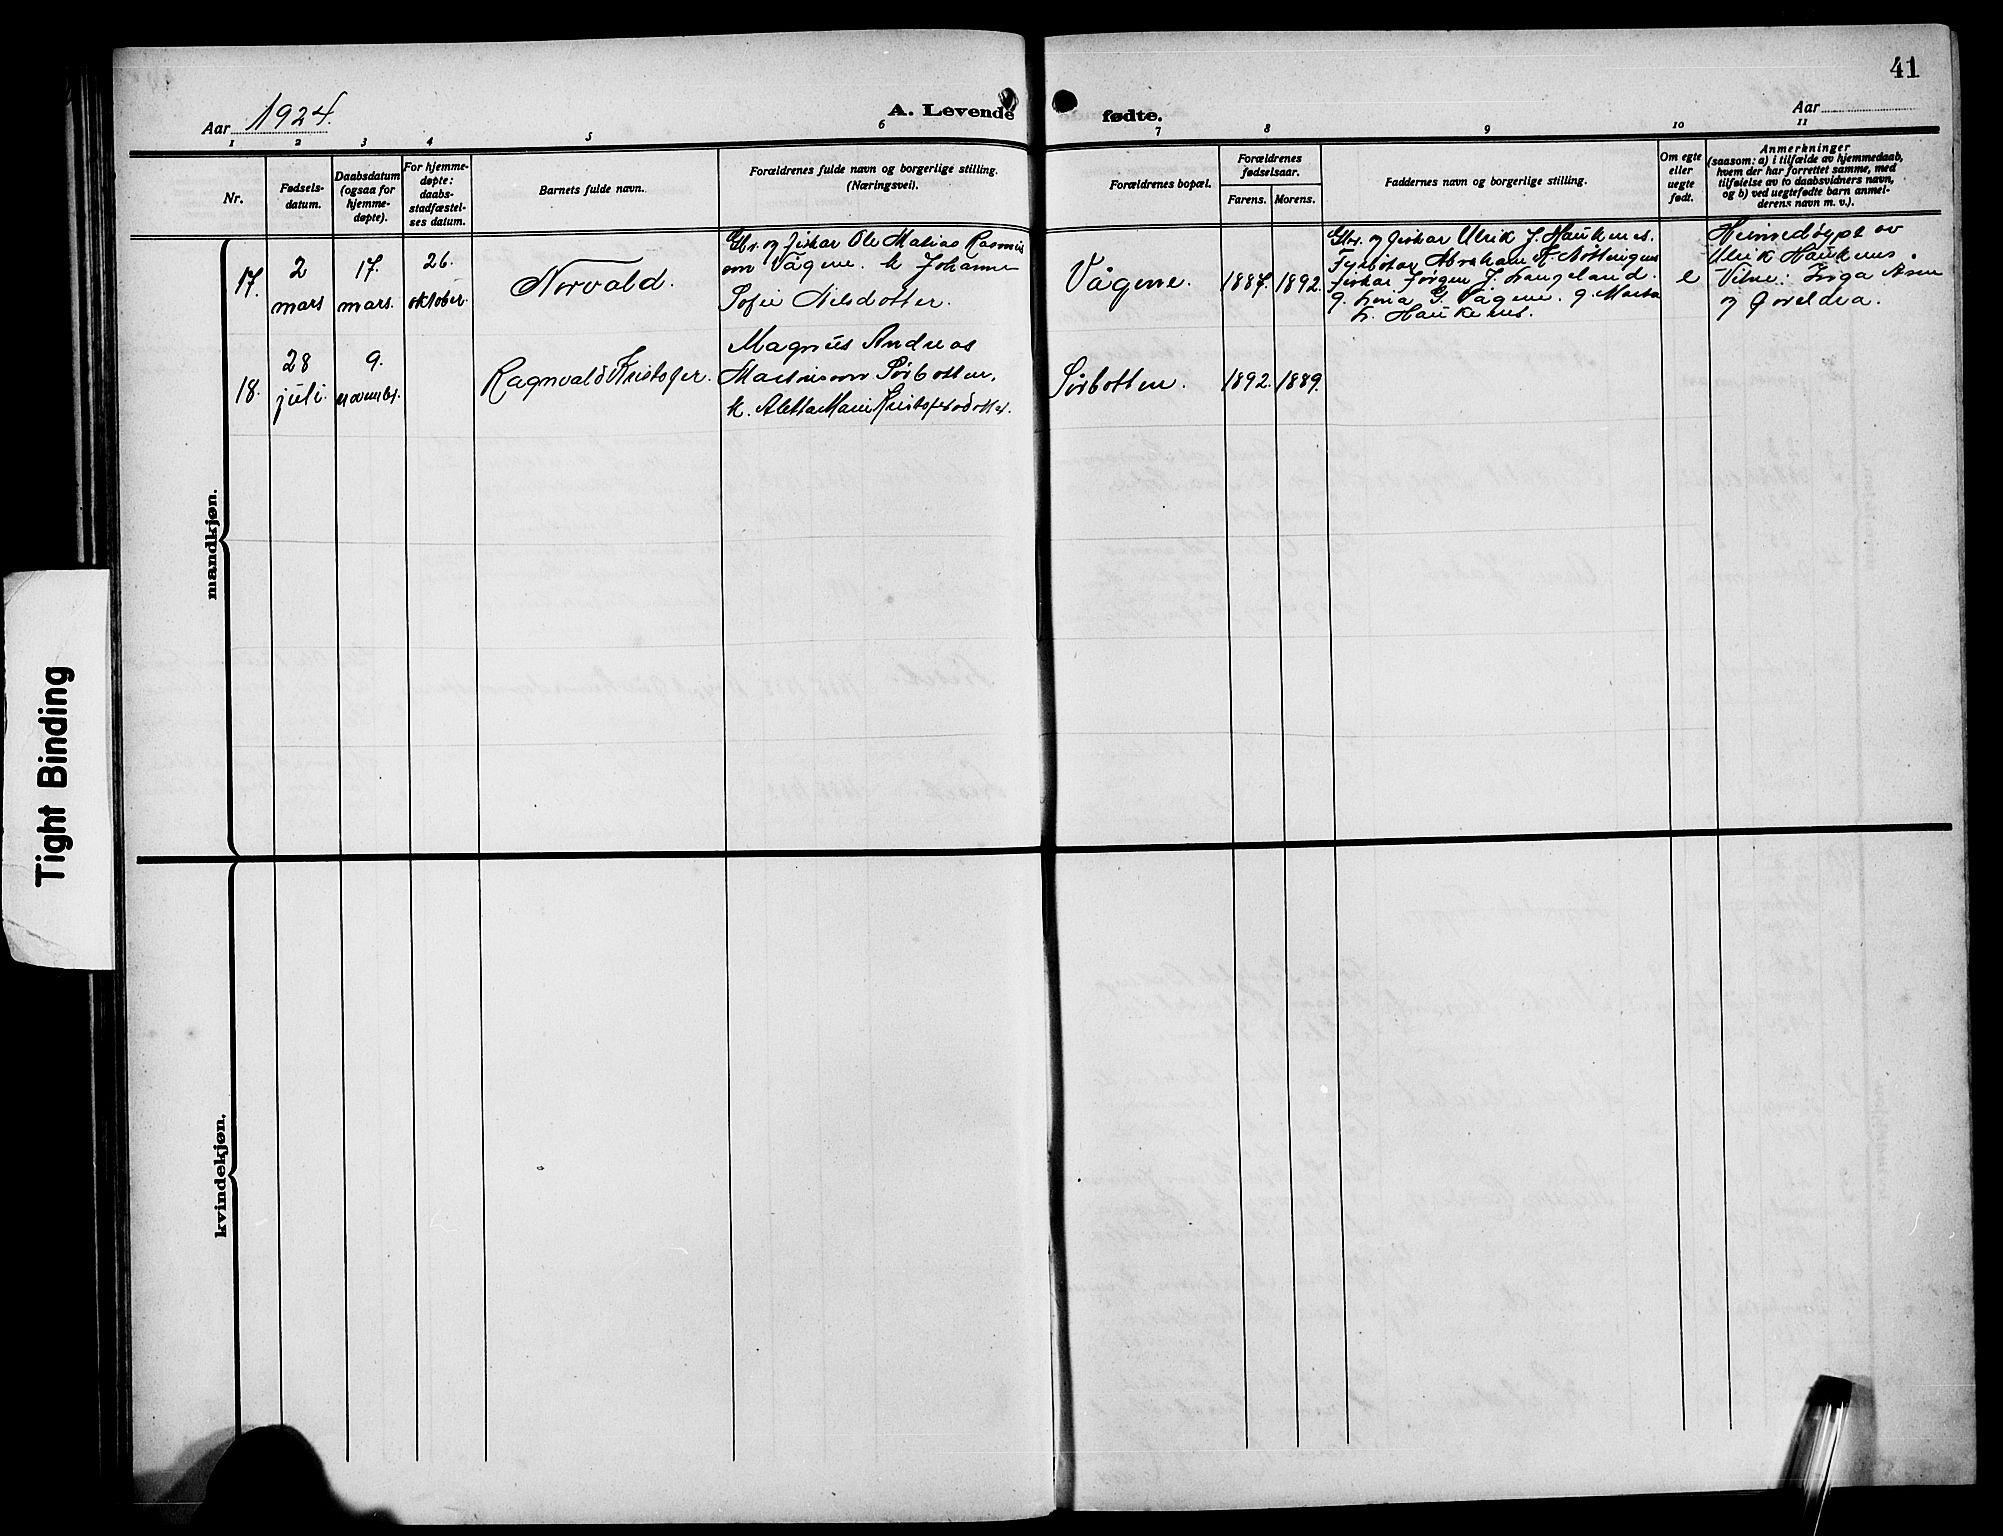 41
Aar 1924.
A. Levende fødte.
Aar
1 2 3 4 5 6 7 8 9 10 11
Nr.
Fødsels-
datum.
Daabsdatum
(ogsaa for
hjemme-
døpte).
For hjemme-
døpte:
daabs-
stadfæstel-
ses datum.
Barnets fulde navn.
Forældrenes fulde navn og borgerlige stilling.
(Næringsvei).
Forældrenes bopæl.
Forældrenes
fødselsaar.
Farens. Morens.
Faddernes navn og borgerlige stilling.
Om egte
eller
uegte
født.
Anmerkninger
(saasom: a) i tilfælde av hjemmedaab,
hvem der har forrettet samme, med
tilføielse av to daabsvidners navn,
og b) ved uegtefødte barn anmel-
derens navn m. v.).
mandkjøn.
17.
2
mars
17.
mars.
26.
oktober
Norvald.
Gbr. og fiskar Ole Matias Rasmus
son Vågene. k. Johanne
Sofie Nilsdotter.
Vågene.
1887. 1892.
Gbr. og fiskar Ulrik J. Haukenes.
Fyrbøtar Abraham A. Nottingnes
fiskar Jørgen J. Langeland.
g. Lina G. Vågene. g. Marta
L. Haukenes.
e
Heimedøypt av
Ulrik Haukenes.
Vitne: Inga Åsen
og foreldra.
18.
28
juli.
9.
novembr.
Ragnvald Kristofer.
Magnus Andreas
Martinsson Sørbotten.
k. Aletta Marie Kristofersdotter.
Sørbotten.
1892. 1889.
kvindekjøn.
Tight Binding